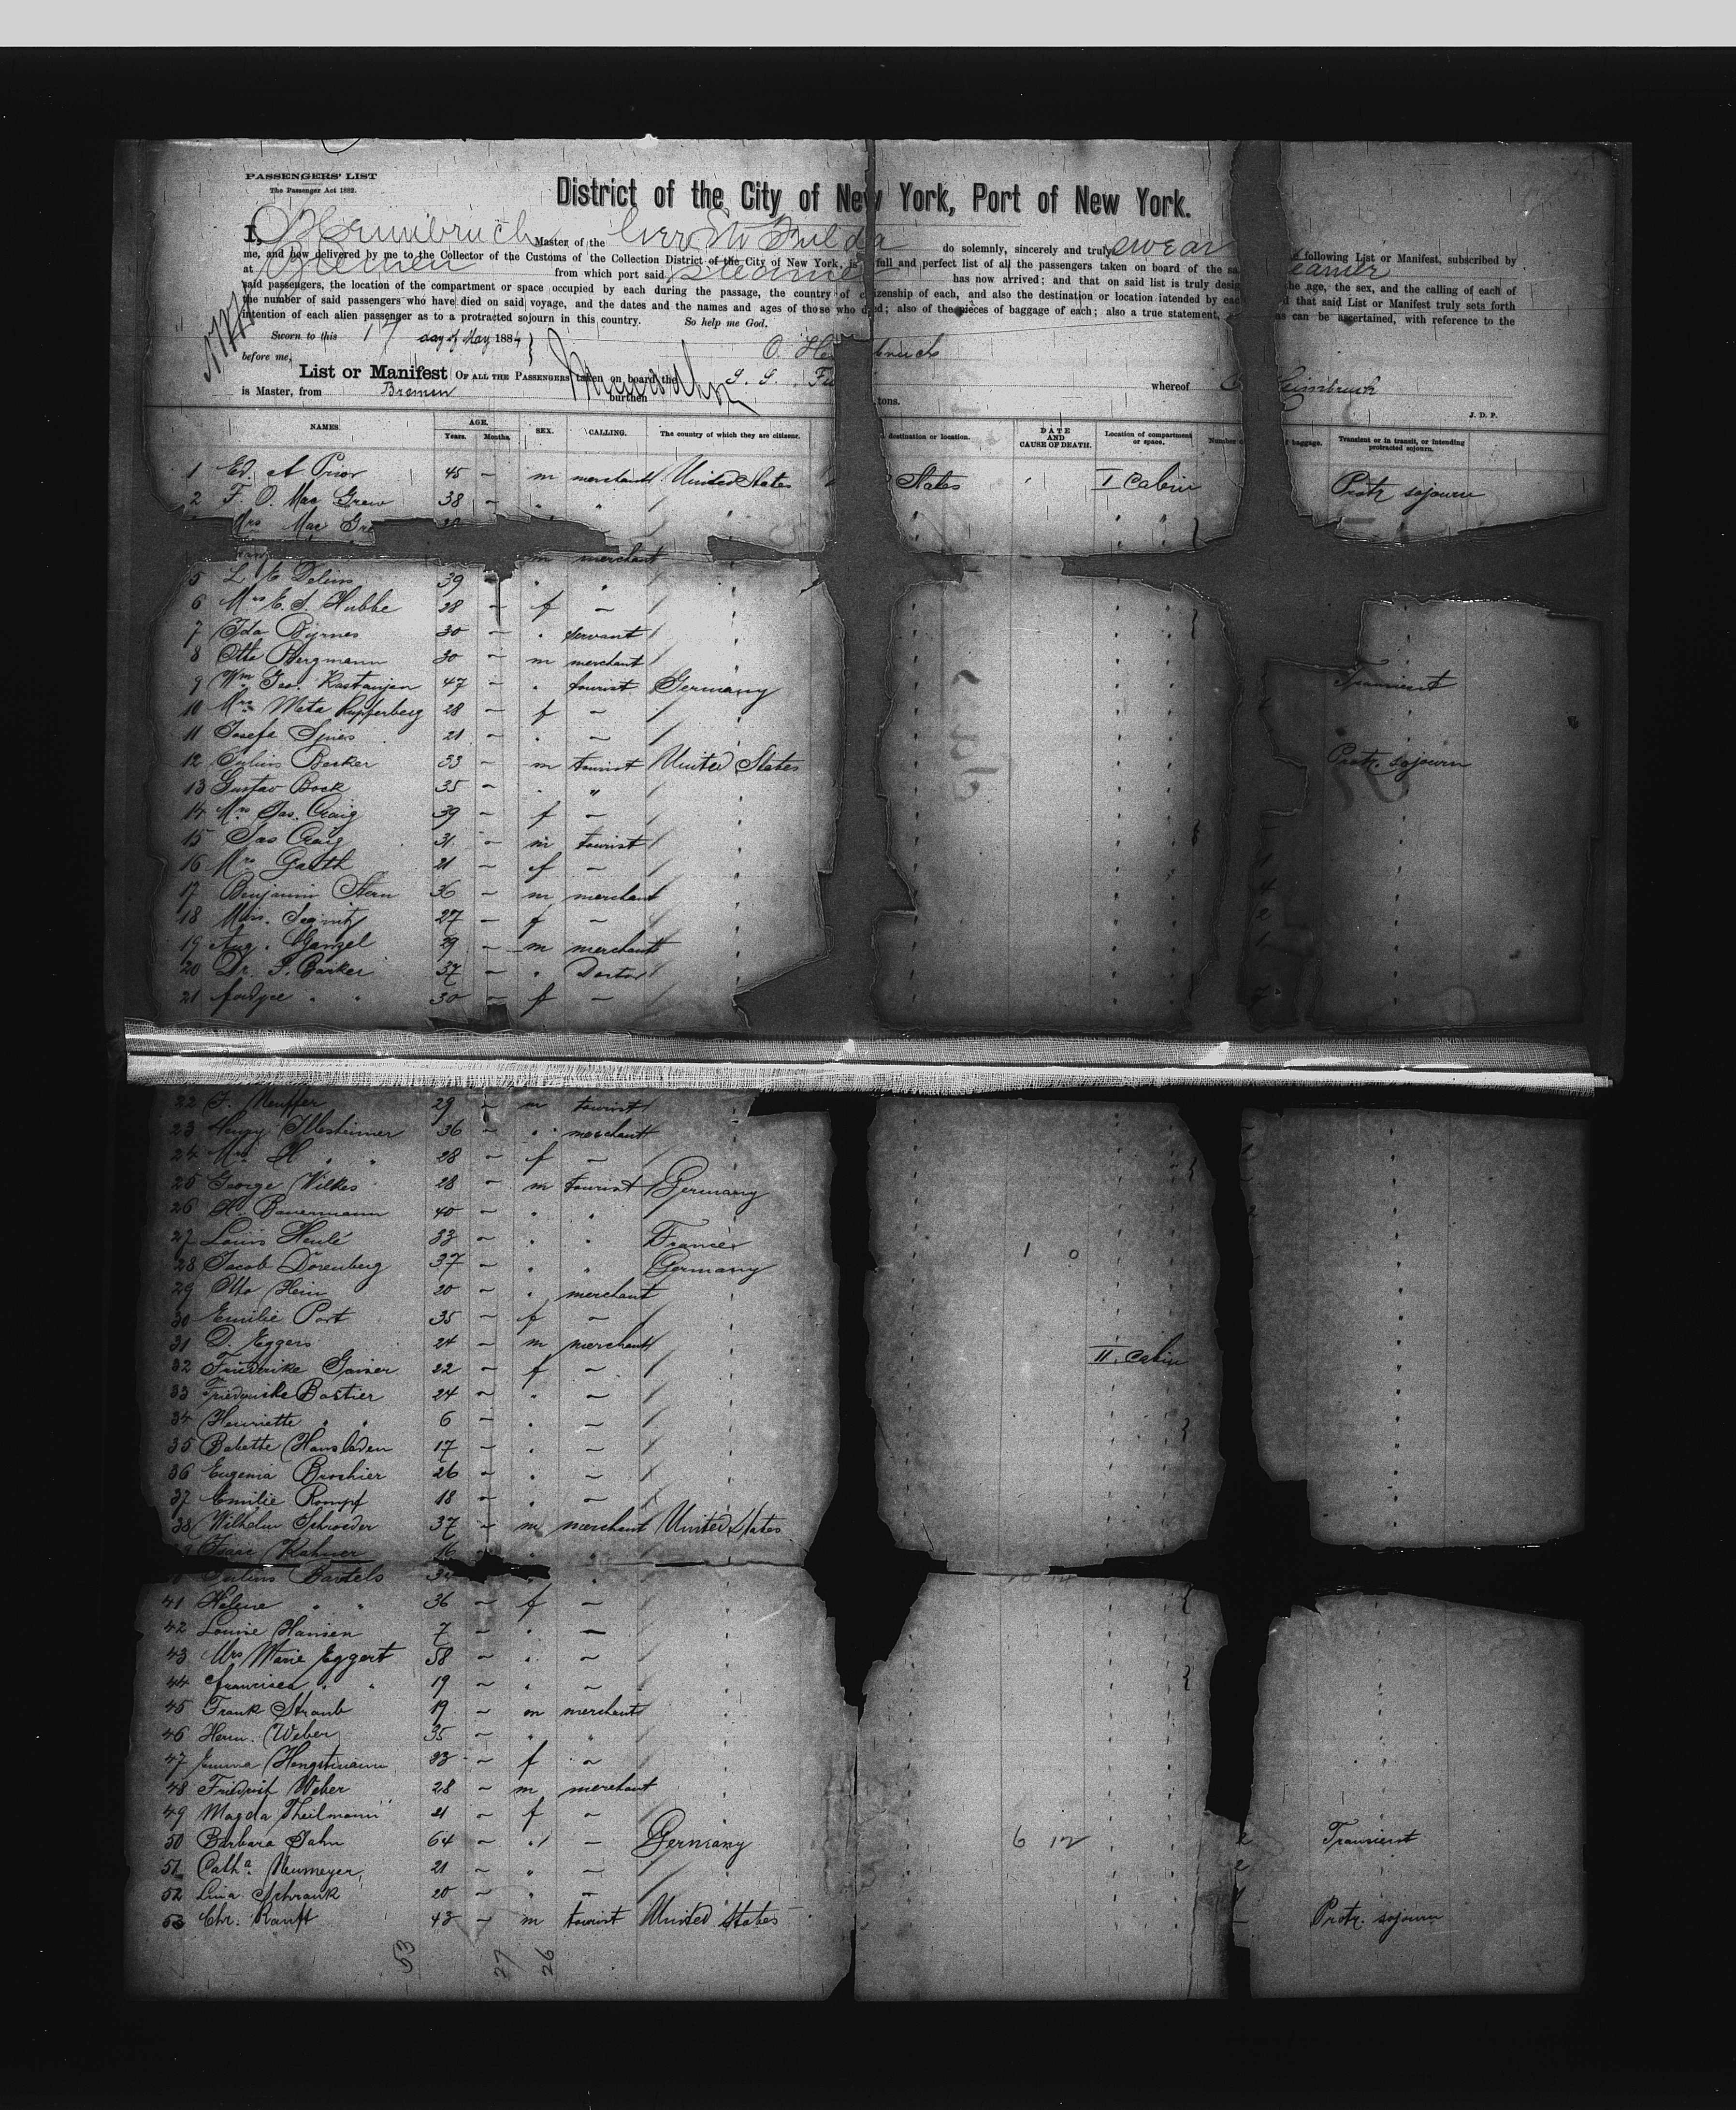 PASSENGERS' LIST
The Passenger Act 1882.
District of the City of New York, Port of New York.
I, O Heimbruch Master of the Gerr Str Fulda do solemnly, sincerely and truly swear following List or Manifest, subscribed by
me, and now delivered by me to the Collector of the Customs of the Collection District of the City of New York, is a full and perfect list of all the passengers taken on board of the sa eamer
at Bremen from which port said steamer has now arrived; and that on said list is truly desig he age, the sex, and the calling of each of
said passengers, the location of the compartment or space occupied by each during the passage, the country of citizenship of each, and also the destination or location intended by eac d that said List or Manifest truly sets forth
the number of said passengers who have died on said voyage, and the dates and the names and ages of those who died; also of the pieces of baggage of each; also a true statement, as can be ascertained, with reference to the
intention of each alien passenger as to a protracted sojourn in this country. So help me God.
Sworn to this 17 day of May 1884
before me, O. He bruch
List or Manifest OF ALL THE PASSENGERS taken on board the S. S. Fu whereof Heimbruch
is Master, from Bremen burthen tons.
J. D. P.
NAMES. AGE. Years. Months. SEX. CALLING. The country of which they are citizens. destination or location. DATE AND CAUSE OF DEATH. Location of compartment or space. Number o f baggage. Transient or in transit, or intending protracted sojourn.
1 Ed. A Prior 45 – m merchant United States States I Cabin Protr sojourn
2 F. O. Mac Grew 38 " "
Mrs Mac Gre
m merchant
5 L E Delius 39 " "
6 Mrs E. S. Hubbe 28 – f –
7 Ida Byrnes 30 – " servant
8 Otto Bergmann 30 – m merchant
9 Wm Geo. Rastanjen 47 – " tourist Germany Transient
10 Mrs Meta Kupferberg 28 – f –
11 Josefe Spies 21 – " –
12 Julius Becker 33 – m tourist United States Protr. sojourn
13 Gustav Bock 35 – " "
14 Mrs Jas. Craig 39 – f –
15 Jas Craig 31 – m tourist
16 Mrs Gauth 21 – f –
17 Benjamin Stern 36 – m merchant
18 Miss. Segnitz 27 – f –
19 Aug. Ganzel 29 – m merchant
20 Dr. S. Barker 37 – " Doctor
21 " " 30 – f –
22 F. Neuffer 29 – m tourist
23 Henry Illesheimer 36 – " merchant
24 Mrs H " " 28 – f –
25 George Wilkes 28 – m tourist Germany
26 H. Bauermann 40 – " "
27 Louis Heulé 33 – " " France 1 0
28 Jacob Dorenberg 37 – " " Germany
29 Otto Hein 20 – " merchant
30 Emilie Port 35 – f –
31 D. Eggers 24 – m merchant
32 Friederike Gaiser 22 – f – II. Cabin
33 Friedericke Bastier 24 – " –
34 Henriette " " 6 – " –
35 Babette Hansladen 17 – " –
36 Eugenia Broshier 26 – " –
37 Emilie Rompf 18 – " –
38 Wilhelm Schroeder 37 – m merchant United States
39 Isaac Kahner 16 " "
Julius Bartels
41 Helene " " 36 – f –
42 Louise Hansen 7 – " –
43 Mrs Marie Eggert 58 – " –
44 Francisca " " 19 – " –
45 Frank Straub 19 – m merchant
46 Herm. Weber 35 – " "
47 Emma Hengstmann 33 – f –
48 Friedrich Weber 28 – m merchant
49 Magda Theilmann 21 – f –
50 Barbara Jahn 64 – " – Germany 6 12 2 Transient
51 Catha. Neumeyer 21 – " – 2
52 Lina Schrank 20 – " –
53 Chr. Ranft 43 – m tourist United States Protr. sojourn
53 27 26